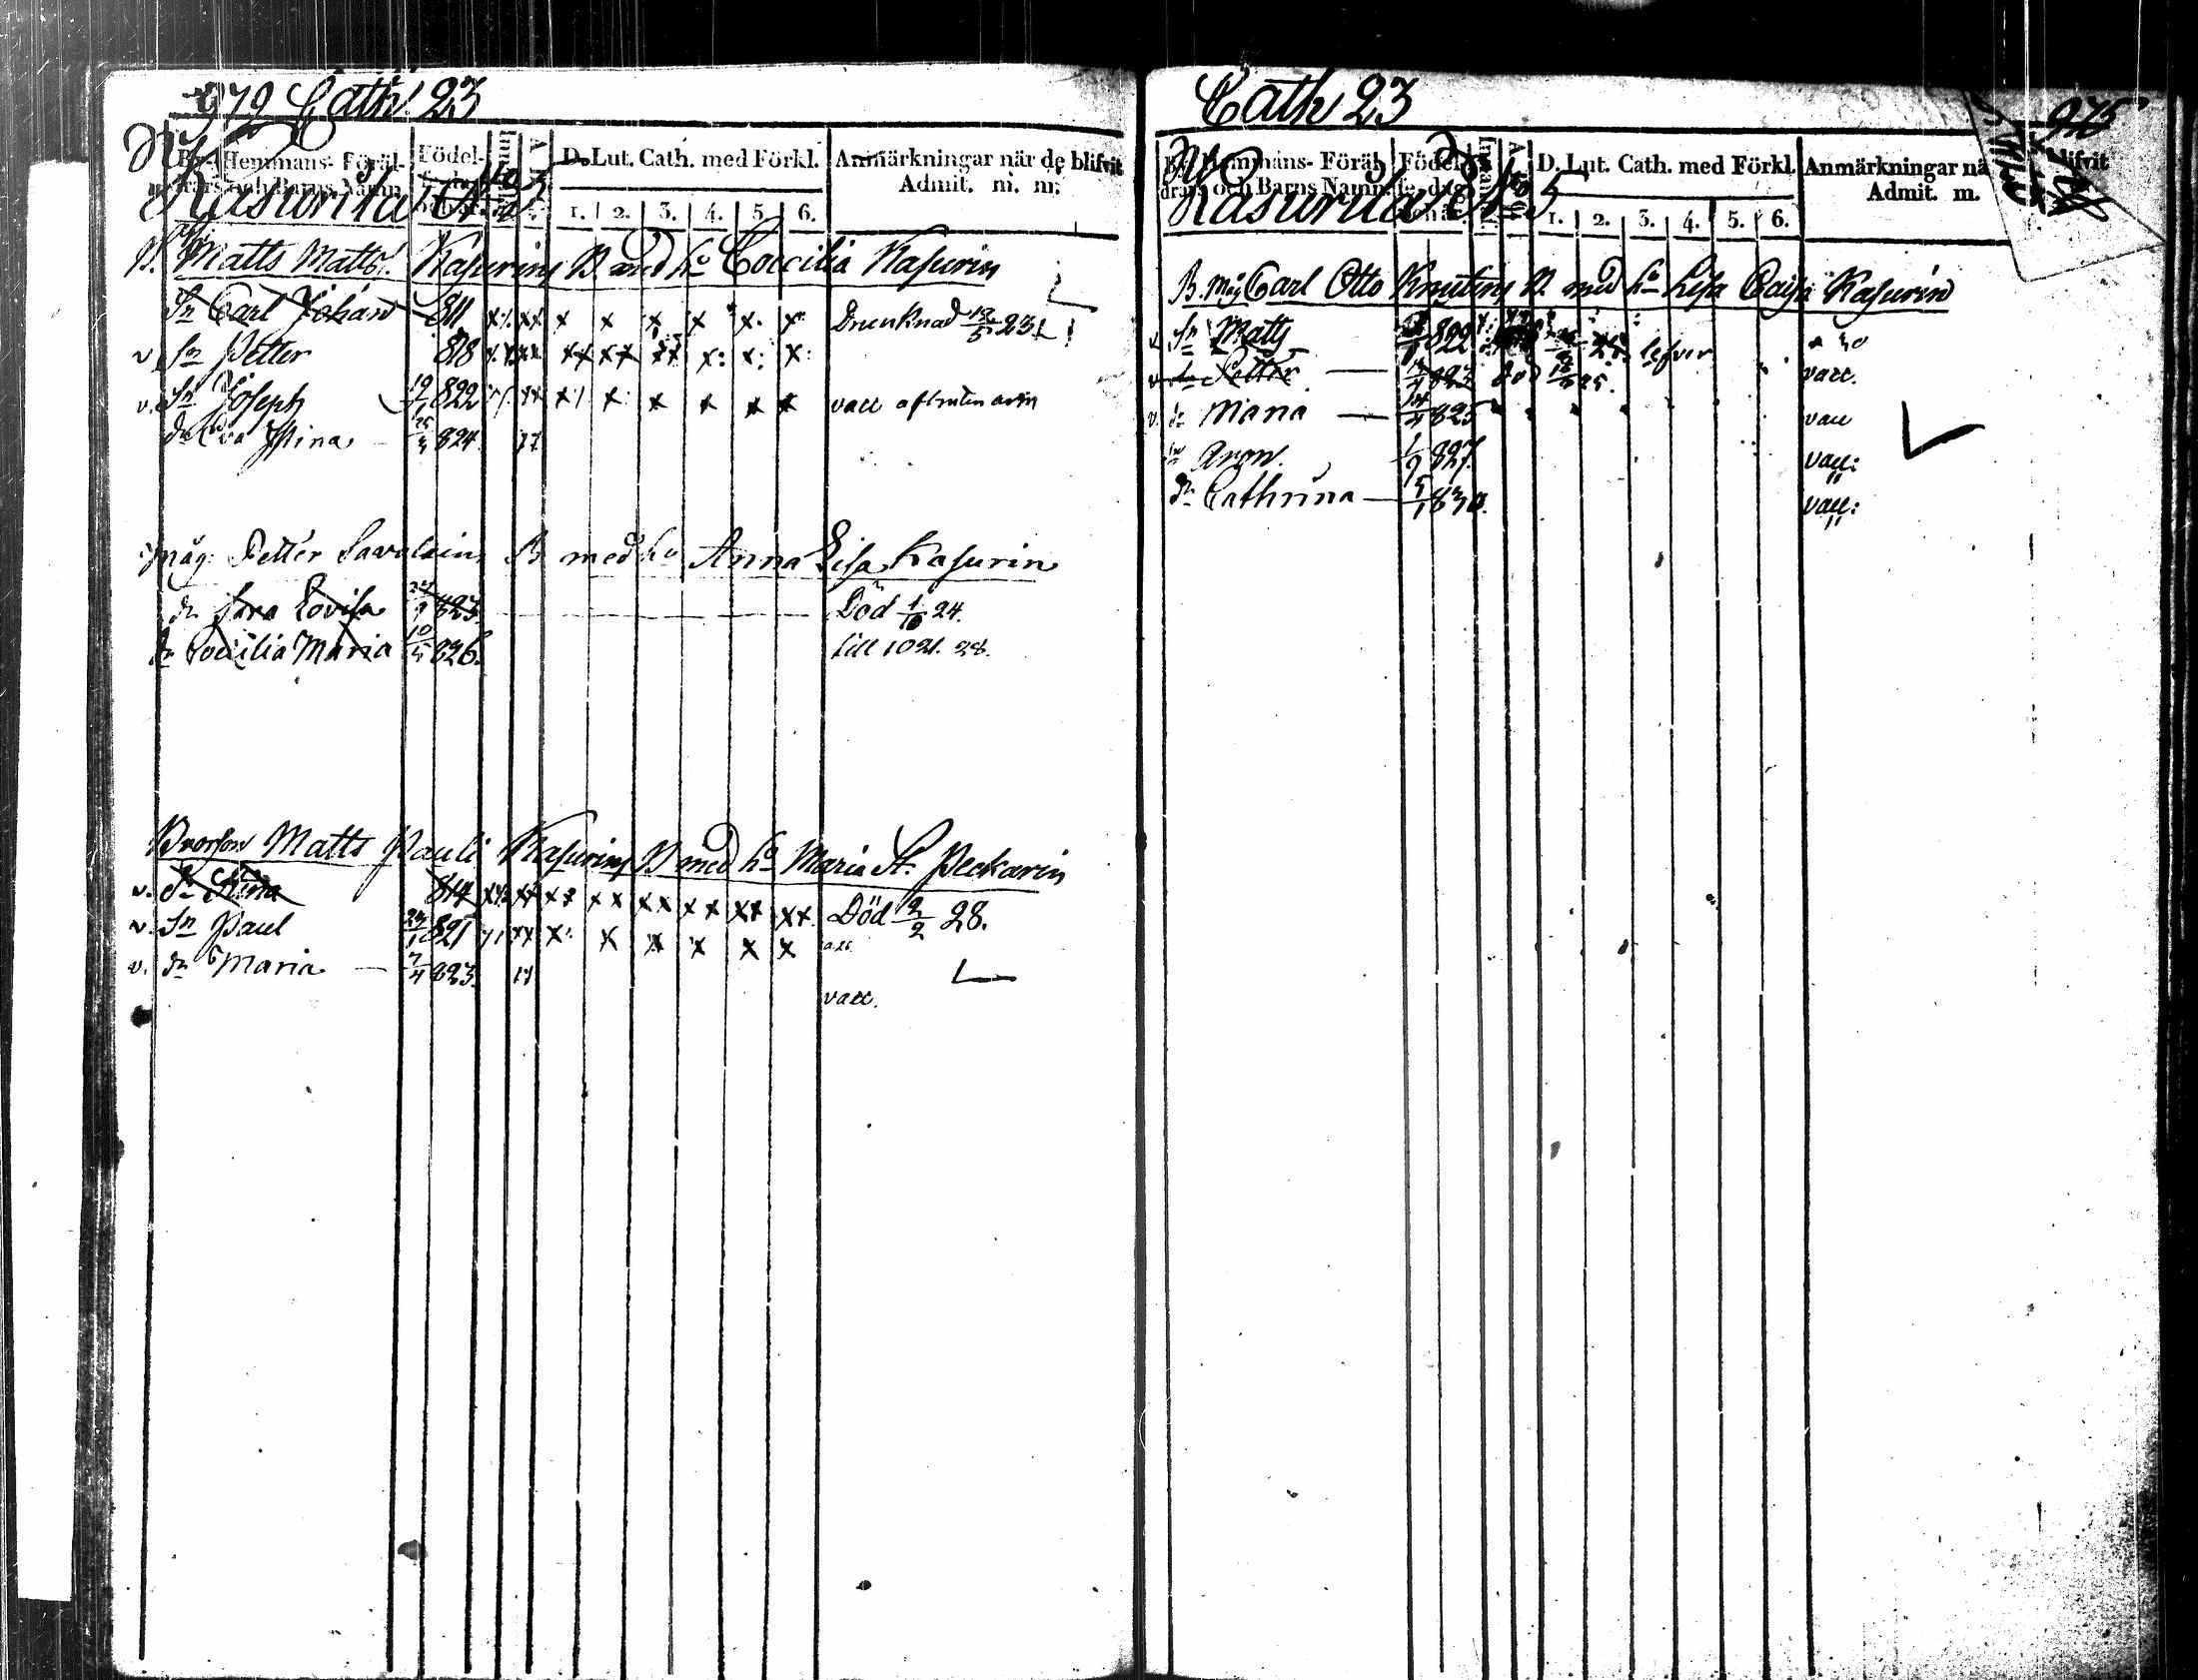 979 Cath 23
By, Hemmans- Föräl-
drars och Barns Namn.
Födel-
D. Lut. Cath. med Förkl.
Anmärkningar när de blifvit
Admit. m. m.
Kasurila No 5
1. 2. 3. 4. 5. 6.
B. Matts Matts: Kasurins B. med ho Coecilia Kasurin
Sn Carl Johan 811 x x x x x x Drunknad 12/5 23
v. Sn Petter 818 xx xx xx x: x: x:
v. Sn Joseph 19/ 822 x x x x x vacc
dr Eva Stina 824.
Måg: Petter Savolain B med ho Anna Lisa Kasurin
dr Sara Lovisa 823. Död 1/10 24.
dr Coecilia Maria 10/5 826. till 1021. 28.
Brorson Matts Pauli Kasurins B med ho Maria St. Peckarin
v. dr Stina 814 xx xx xx xx xx xx xx Död 2/2 28.
v. Sn Paul 23/1 821 xx x: x x x x x
v. dr Maria — 7/4 823.
vacc.
Cath 23
975
By, Hemmans- Föräl-
drars och Barns Namn.
Födel-
D. Lut. Cath. med Förkl.
Anmärkningar nä blifvit
Admit. m.
Kasurila No 5
1. 2. 3. 4. 5. 6.
B. Måg Carl Otto Knutins B. med ho Lisa Caisa Kasurin
Sn Matts 822 lefver
Sn Petter — 823 död 25. vacc.
v. dr Maria — 14/4 825 vacc
Sn Aron. 1/9 827. vacc:
dr Cathrina — 5/1 830. vacc: